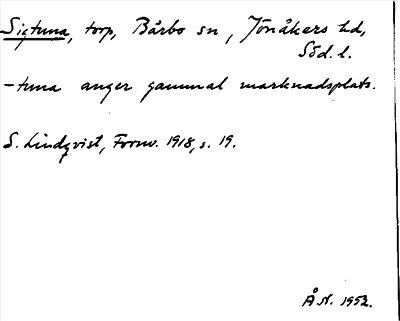 Sigtuna, torp, Bärbo sn, Jönåkers hd,
Söd. l.
-tuna anger gammal marknadsplats.
S. Lindqvist, Fornv. 1918, s. 19.
Å.N. 1952.